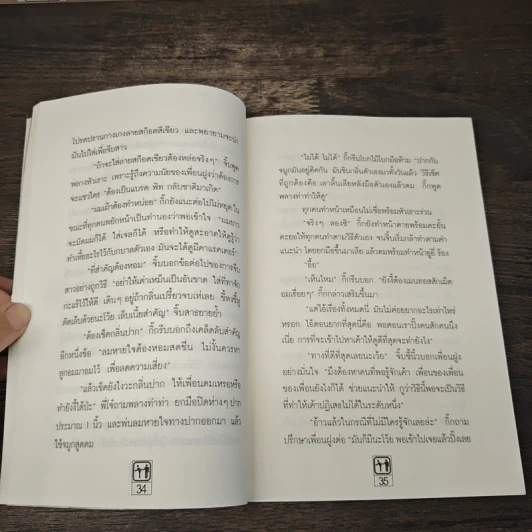 โปรดปรานกางเกงลายสก็อตสีเขียว และพยายามจะนำ
มันไปใส่เพื่อจีบสาว
"ถ้าจะใส่ลายสก็อตเขียวต้องหล่อจริงๆ" จิ๊บพูด
พลางหัวเราะ เพราะรู้ถึงความนัยของเพื่อนฝูงว่าต้องการ
จะแซวใคร "ต้องเป็นแบรด พิท กลับชาติมาเกิด"
"ผมเผ้าต้องทำหน่อย" กิ๊กยังแนะต่อไปไม่หยุด ใน
ขณะที่ทุกคนพยักหน้าเป็นทำนองว่าพอเข้าใจ
จะมัดผมก็ได้ ใส่เจลก็ได้ หรือทำให้ดูสะอาดให้ดูรู้ว่า
ทำเหี้ยอะไรไว้กับกบาลตัวเอง มันจะได้ดูมีคาแรคเตอร์"
"ที่สำคัญต้องหอม" จิ๊บบอกข้อต่อไปของการจีบ
สาวอย่างถูกวิธี "อย่าให้เต่าเหม็นเป็นอันขาด
กะแร้ไว้ให้ดี เดินๆ อยู่ถ้ากลิ่นเปรี้ยวจบเห่เลย
ตัดเล็บด้วยนะโว้ย เล็บเนี่ยสำคัญ" จิ๊บสาธยายย้ำ
"ต้องเช็คกลิ่นปาก" กิ๊กรีบบอกถึงเคล็ดลับสำคัญ
อีกหนึ่งข้อ "ลมหายใจต้องหอมสดชื่น ไม่งั้นควรหา
ลูกอมมาอมไว้ เพื่อลดความเสี่ยง"
"แล้วเช็คยังไงวะกลิ่นปาก ให้เพื่อนดมเหรอหรือ
ทำยังงี้ได้ปะ" พี่โจ้ถามพลางทำท่า ยกมือปิดห่างๆ ปาก
ประมาณ 1 นิ้ว และพ่นลมหายใจทางปากออกมา แล้ว
ใช้จมูกสูดดม
34
"ไม่ได้ ไม่ได้" กิ๊กรีบโบกไม้โบกมือห้าม "ปากกับ
จมูกมันอยู่ติดกัน มันชินกลิ่นตัวเองมาทั้งวันแล้ว วิธีเช็ค
ที่ถูกต้องคือ เอาลิ้นเลียหลังมือตัวเองแล้วดม กิ๊กพูด
พลางทำท่าให้ดู"
ทุกคนทำหน้าเหมือนไม่เชื่อพร้อมหัวเราะร่วน
"จริงๆ ลองซิ" กิ๊กยังทำหน้าตาขพร้อมคะยั้น
คะยอให้ทุกคนทำตามวิธีตัวเอง จนจิ๊บเริ่มกล้าทำตามคำ
แนะนำ โดยยกมือขึ้นมาเลีย แล้วดมพร้อมทำหน้ายู่ยี่ ร้อง
"อื้อ"
"เห็นไหม" กิ๊กบอก "ยังงี้ต้องแมนทอสสักเม็ด
อมเรื่อยๆ" กิ๊กกล่าวเสริมขึ้นมา
"แต่ไอ้เรื่องทั้งหมดนี้ มันไม่ค่อยยากอะไรเท่าไหร่
หรอก ไอ้ตอนยากที่สุดนี่คือ พอตอนเราปิ๊งคนสักคนนึง
เนี่ย การที่จะเข้าไปหาเค้าให้ดูดีที่สุดจะทำยังไง"
"ทางที่ดีที่สุดเลยนะเว้ย" จิ๊บชี้นิ้วบอกเพื่อนฝูง
อย่างมั่นใจ "มึงต้องหาคนที่พอรู้จักเค้า เพื่อนของเพื่อน
ของเพื่อนยังไงก็ได้ ช่วยแนะนำให้ กูว่าวิธีนี้พอจะเป็นวิธี
ที่ทำให้เค้าปฏิเสธไม่ได้ในระดับหนึ่ง"
"อ้าวแล้วในกรณีที่ไม่มีใครรู้จักเลยล่ะ" กิ๊กถาม
ปรึกษาเพื่อนฝูงต่อ "มันก็มีนะโว้ย พอเข้าไปเจอแล้วปิ๊งเลย
35